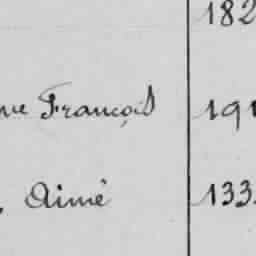 182
François 191
Aimé 133